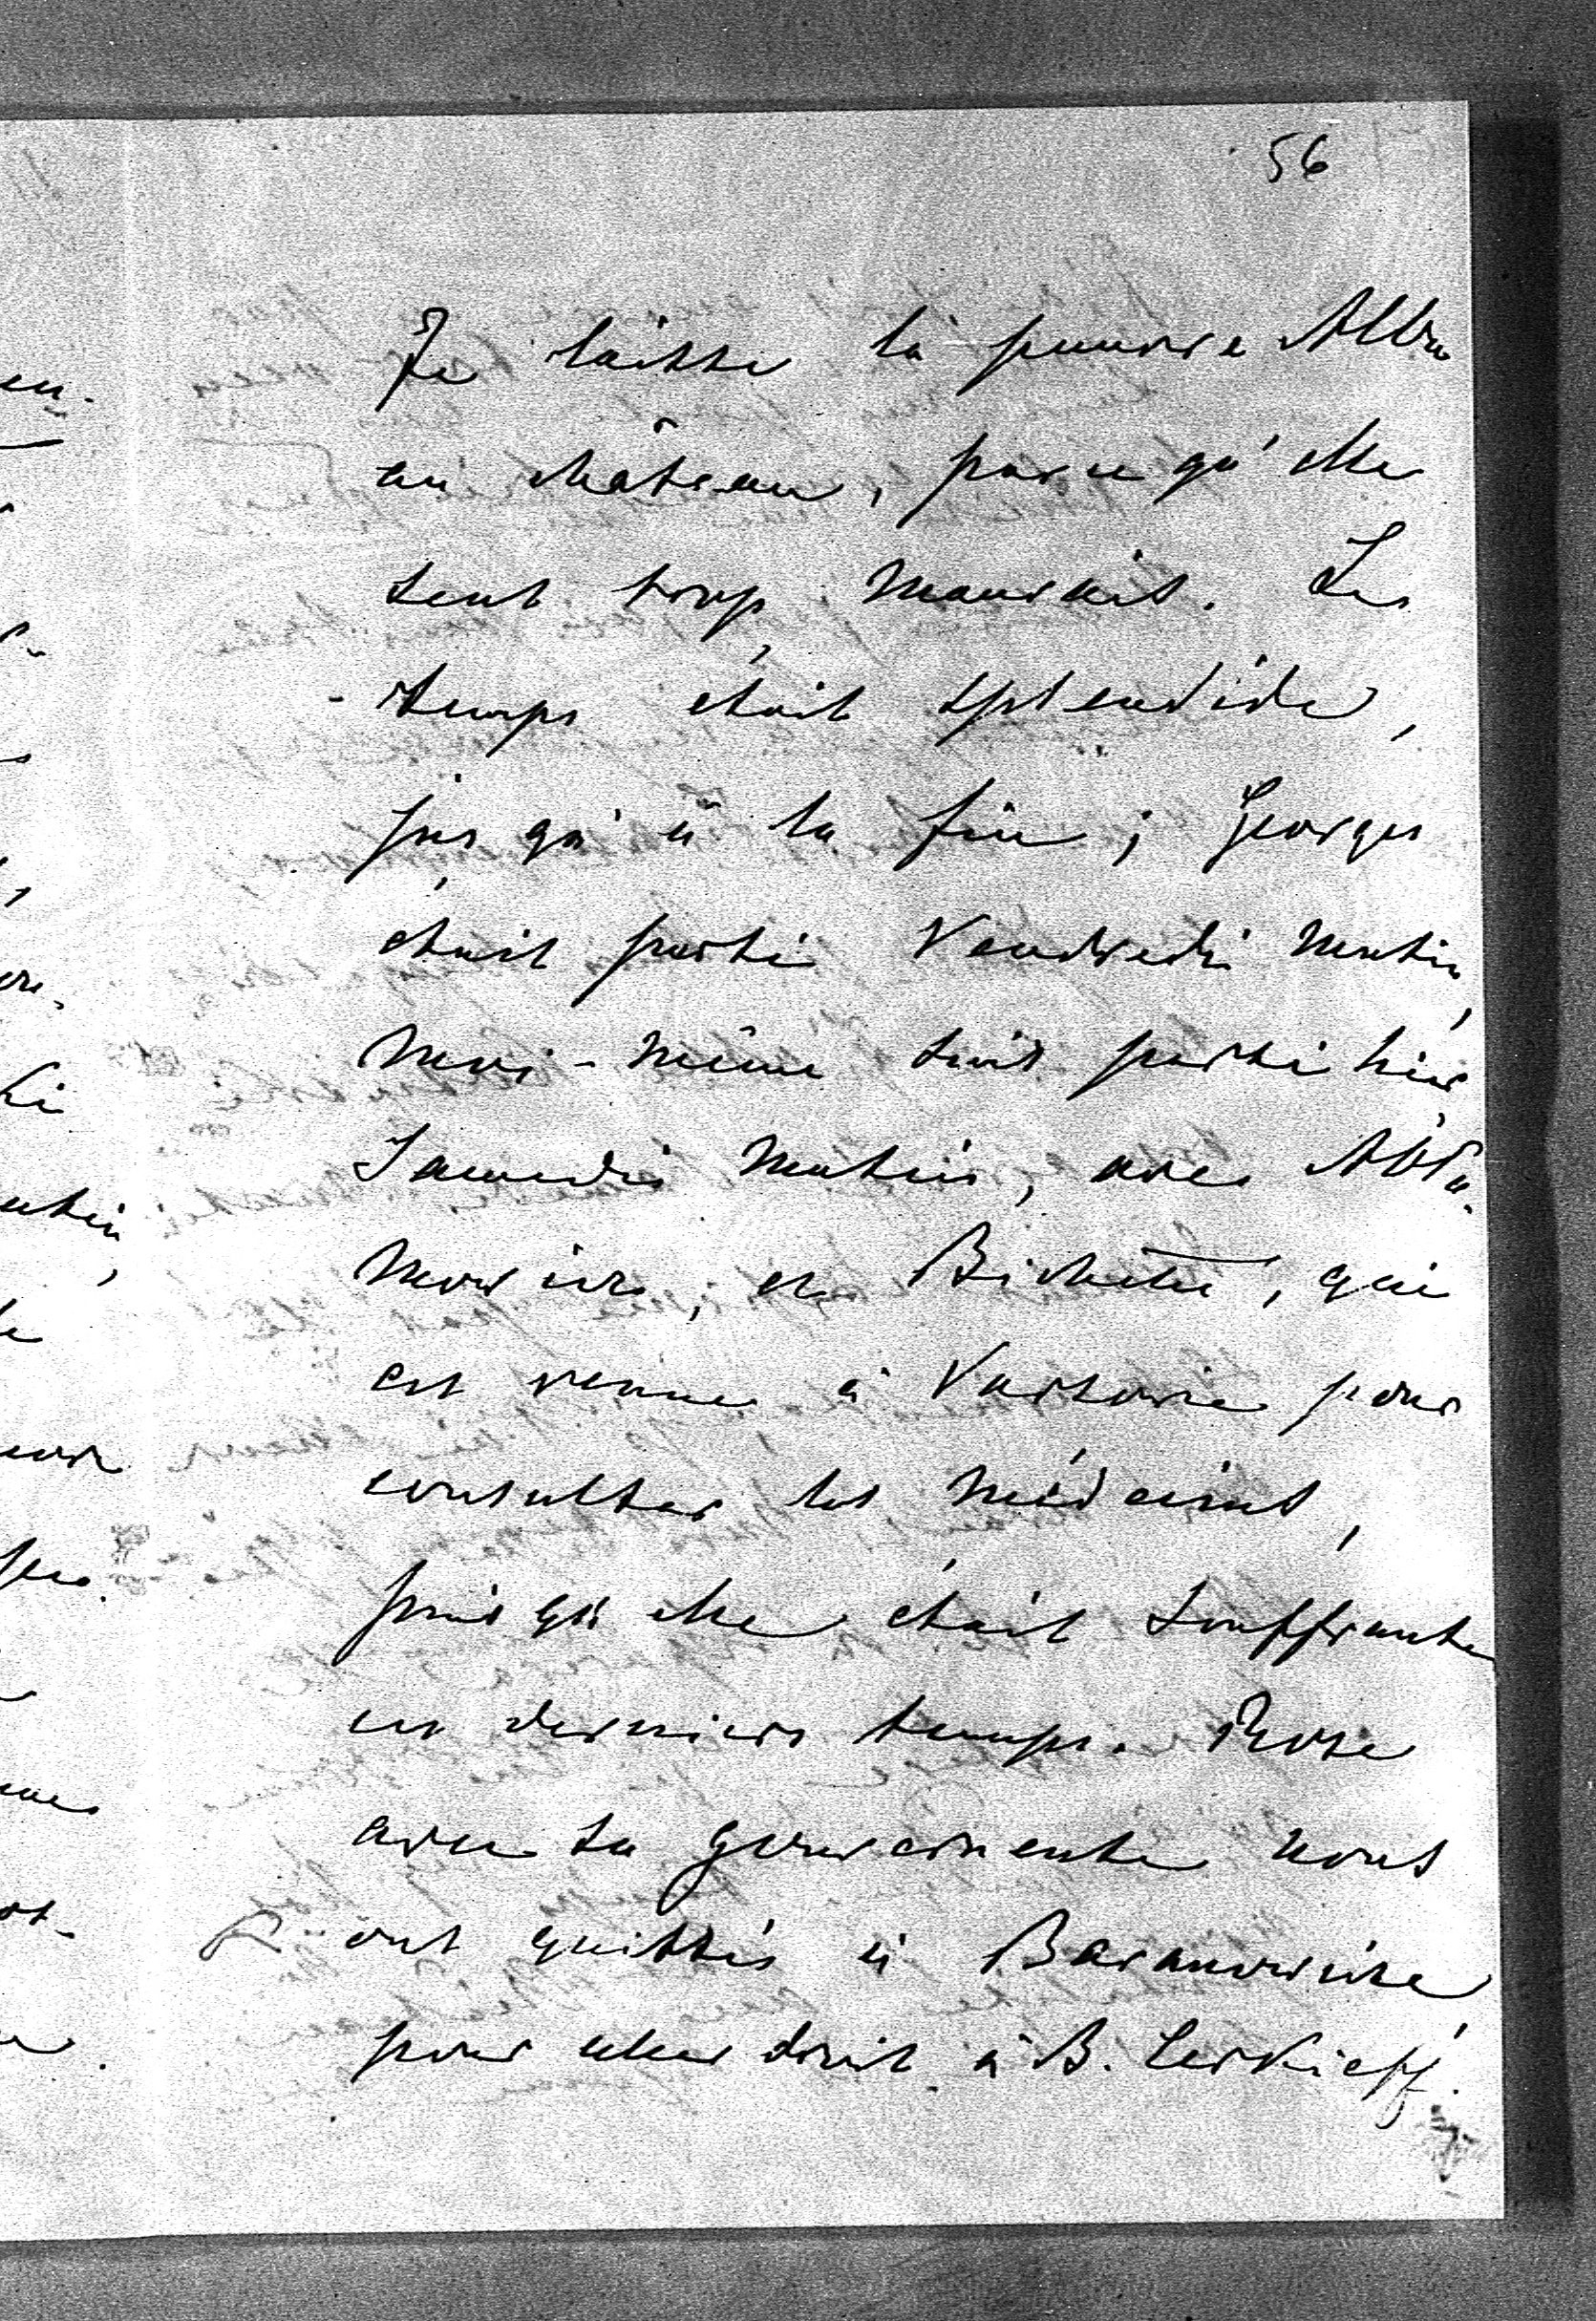 56
Je laisse la pauvre Alba
au château, parce qu'elle
sent trop mauvais. Le
temps était splendide,
jusqu'à la fin ; Georges
était parti Vendredi matin,
moi-même suis parti hier,
Samedi matin, avec
et Bichette, qui
est venue à Varsovie pour
consulter les médecins,
puisqu'elle était souffrante
ces derniers temps. Rose
avec sa gouvernante nous
ont quittés à Baranowicze
pour aller droit à B. Cerkieff.